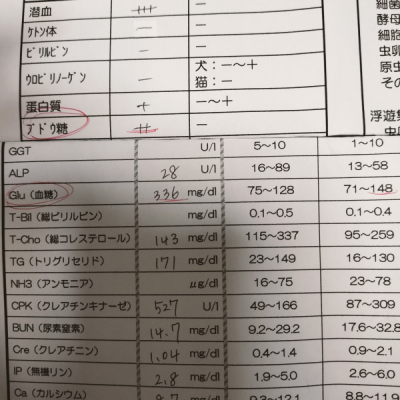 潜血 +++ ー
ケトン体 ー ー
ビリルビン ー ー
ウロビリノーゲン ー 犬：ー～＋
猫：ー
蛋白質 + ー～＋
ブドウ糖 ++ ー
細菌
酵母
細胞
虫卵
原虫
その
浮遊集
虫
GGT U/l 5～10 1～10
ALP 28 U/l 16～89 13～58
Glu（血糖） 336 mg/dl 75～128 71～148
T-Bil（総ビリルビン） mg/dl 0.1～0.5 0.1～0.4
T-Cho（総コレステロール） 143 mg/dl 115～337 95～259
TG（トリグリセリド） 171 mg/dl 23～149 16～130
NH3（アンモニア） μg/dl 16～75 23～78
CPK（クレアチンキナーゼ） 527 U/l 49～166 87～309
BUN（尿素窒素） 14.7 mg/dl 9.2～29.2 17.6～32.8
Cre（クレアチニン） 1.04 mg/dl 0.4～1.4 0.9～2.1
IP（無機リン） 2.8 mg/dl 1.9～5.0 2.6～6.0
Ca（カルシウム） mg/dl 9.3～12.1 8.8～11.9